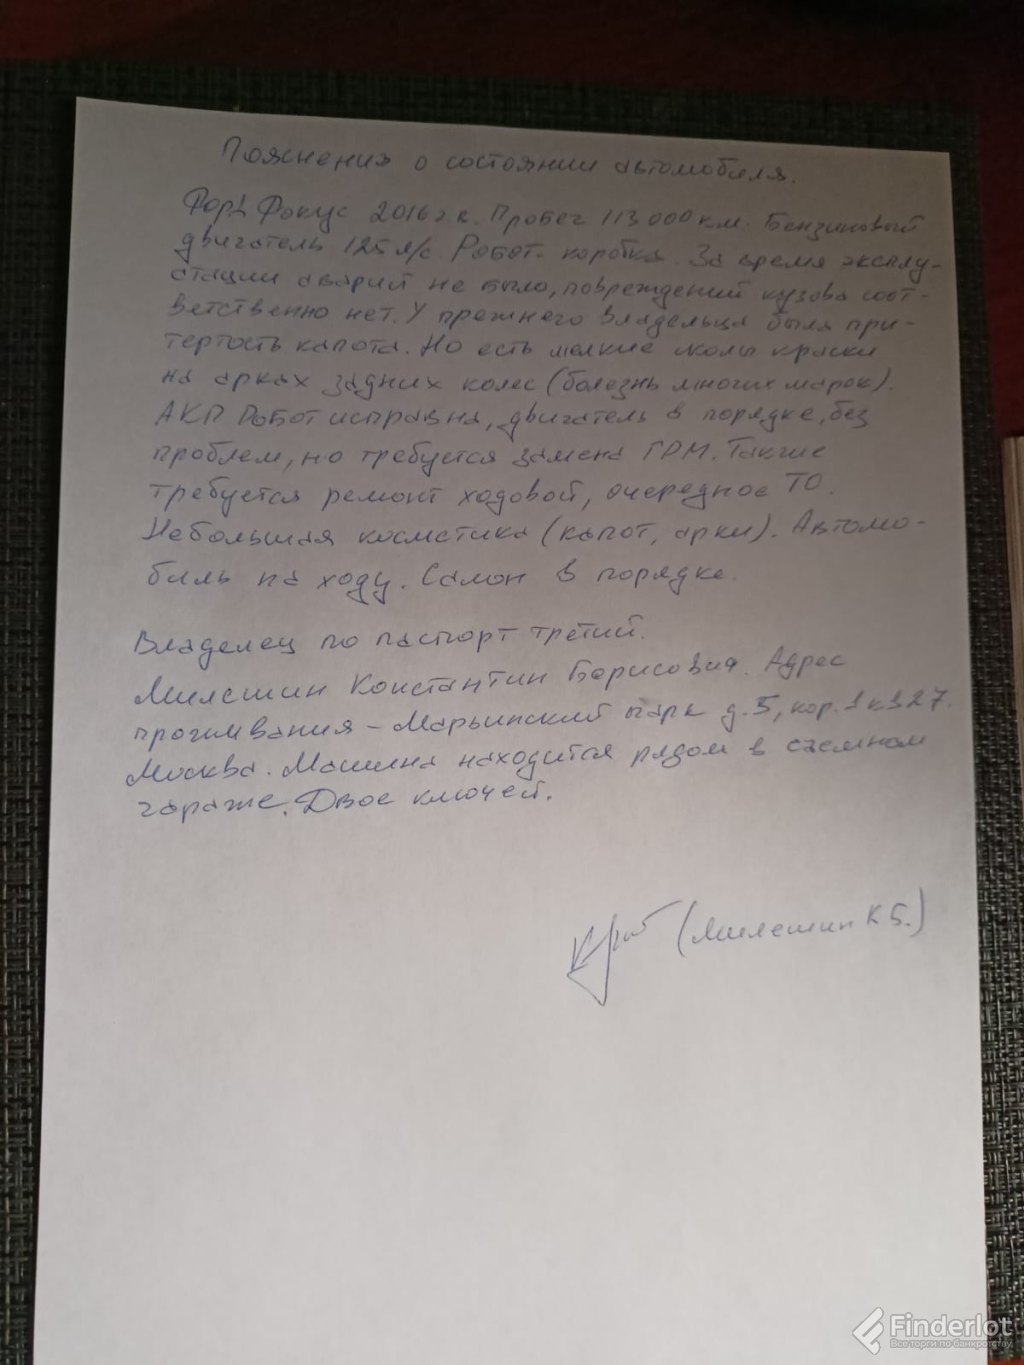 Пояснения о состоянии автомобиля.
Форд Фокус 2016 г.в. Пробег 113 000 км. Бензиновый
двигатель 125 л/с. Робот-коробка. За время эксплу-
атации аварий не было, повреждений кузова соот-
ветственно нет. У прежнего владельца была при-
тертость капота. Но есть мелкие сколы краски
на арках задних колес (болезнь многих марок).
АКП Робот исправна, двигатель в порядке, без
проблем, но требуется замена ГРМ. Также
требуется ремонт ходовой, очередное ТО.
Небольшая косметика (капот, арки). Автомо-
биль на ходу. Салон в порядке.
Владелец по паспорт третий.
Милешин Константин Борисович. Адрес
проживания - Марьинский парк д.5, кор.1 к 327.
Москва. Машина находится рядом в съемном
гараже. Двое ключей.
(Милешин К Б.)
Finderlot
Все торги по банкротству